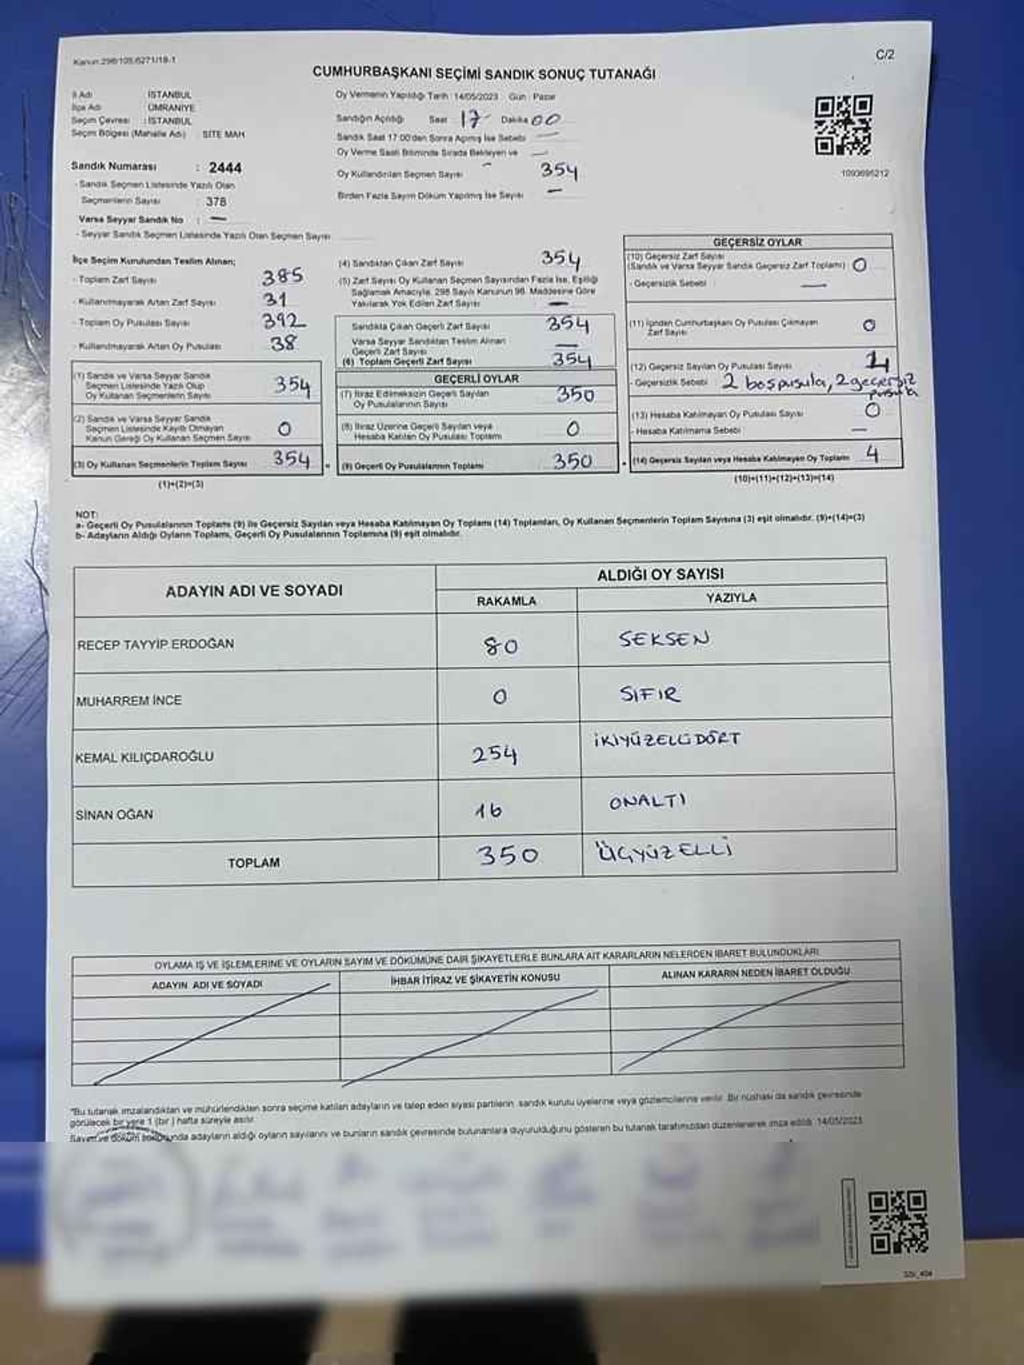 Kanun:298/105,6271/18-1
C/2
CUMHURBAŞKANI SEÇİMİ SANDIK SONUÇ TUTANAĞI
İl Adı İSTANBUL
İlçe Adı ÜMRANİYE
Seçim Çevresi : İSTANBUL
Seçim Bölgesi (Mahalle Adı) SİTE MAH
Sandık Numarası : 2444
- Sandık Seçmen Listesinde Yazılı Olan
Seçmenlerin Sayısı : 378
Varsa Seyyar Sandık No : —
- Seyyar Sandık Seçmen Listesinde Yazılı Olan Seçmen Sayısı
Oy Vermenin Yapıldığı Tarih : 14/05/2023 Gün : Pazar
Sandığın Açıldığı Saat 17 Dakika 00
Sandık Saat 17:00'den Sonra Açılmış İse Sebebi —
Oy Verme Saati Bitiminde Sırada Bekleyen ve —
Oy Kullandırılan Seçmen Sayısı 354
Birden Fazla Sayım Döküm Yapılmış İse Sayısı —
1093695212
İlçe Seçim Kurulundan Teslim Alınan;
- Toplam Zarf Sayısı 385
- Kullanılmayarak Artan Zarf Sayısı 31
- Toplam Oy Pusulası Sayısı 392
- Kullanılmayarak Artan Oy Pusulası 38
(1) Sandık ve Varsa Seyyar Sandık
Seçmen Listesinde Yazılı Olup
Oy Kullanan Seçmenlerin Sayısı 354
(2) Sandık ve Varsa Seyyar Sandık
Seçmen Listesinde Kayıtlı Olmayan
Kanun Gereği Oy Kullanan Seçmen Sayısı 0
(3) Oy Kullanan Seçmenlerin Toplam Sayısı 354
(1)+(2)=(3)
(4) Sandıktan Çıkan Zarf Sayısı 354
(5) Zarf Sayısı Oy Kullanan Seçmen Sayısından Fazla İse, Eşitliği
Sağlamak Amacıyla, 298 Sayılı Kanunun 98. Maddesine Göre
Yakılarak Yok Edilen Zarf Sayısı —
Sandıkta Çıkan Geçerli Zarf Sayısı 354
Varsa Seyyar Sandıktan Teslim Alınan
Geçerli Zarf Sayısı —
(6) Toplam Geçerli Zarf Sayısı 354
GEÇERLİ OYLAR
(7) İtiraz Edilmeksizin Geçerli Sayılan
Oy Pusulalarının Sayısı 350
(8) İtiraz Üzerine Geçerli Sayılan veya
Hesaba Katılan Oy Pusulası Toplamı 0
(9) Geçerli Oy Pusulalarının Toplamı 350
GEÇERSİZ OYLAR
(10) Geçersiz Zarf Sayısı
(Sandık ve Varsa Seyyar Sandık Geçersiz Zarf Toplamı) 0
- Geçersizlik Sebebi —
(11) İçinden Cumhurbaşkanı Oy Pusulası Çıkmayan
Zarf Sayısı 0
(12) Geçersiz Sayılan Oy Pusulası Sayısı 4
- Geçersizlik Sebebi 2 boş pusula, 2 geçersiz
pusula
(13) Hesaba Katılmayan Oy Pusulası Sayısı 0
- Hesaba Katılmama Sebebi —
(14) Geçersiz Sayılan veya Hesaba Katılmayan Oy Toplamı 4
(10)+(11)+(12)+(13)=(14)
NOT:
a- Geçerli Oy Pusulalarının Toplamı (9) ile Geçersiz Sayılan veya Hesaba Katılmayan Oy Toplamı (14) Toplamları, Oy Kullanan Seçmenlerin Toplam Sayısına (3) eşit olmalıdır. (9)+(14)=(3)
b- Adayların Aldığı Oyların Toplamı, Geçerli Oy Pusulalarının Toplamına (9) eşit olmalıdır.
ADAYIN ADI VE SOYADI
ALDIĞI OY SAYISI
RAKAMLA YAZIYLA
RECEP TAYYİP ERDOĞAN 80 SEKSEN
MUHARREM İNCE 0 SIFIR
KEMAL KILIÇDAROĞLU 254 İKİYÜZELLİDÖRT
SİNAN OĞAN 16 ONALTI
TOPLAM 350 ÜÇYÜZELLİ
OYLAMA İŞ VE İŞLEMLERİNE VE OYLARIN SAYIM VE DÖKÜMÜNE DAİR ŞİKAYETLERLE BUNLARA AİT KARARLARIN NELERDEN İBARET BULUNDUKLARI
ADAYIN ADI VE SOYADI İHBAR İTİRAZ VE ŞİKAYETİN KONUSU ALINAN KARARIN NEDEN İBARET OLDUĞU
"Bu tutanak imzalandıktan ve mühürlendikten sonra seçime katılan adayların ve talep eden siyasi partilerin, sandık kurulu üyelerine veya gözlemcilerine verilir. Bir nüshası da sandık çevresinde
görülecek bir yere 1 (bir) hafta süreyle asılır.
Sayım ve döküm sonucunda adayların aldığı oyların sayılarını ve bunların sandık çevresinde bulunanlara duyurulduğunu gösteren bu tutanak tarafımızdan düzenlenerek imza edildi. 14/05/2023